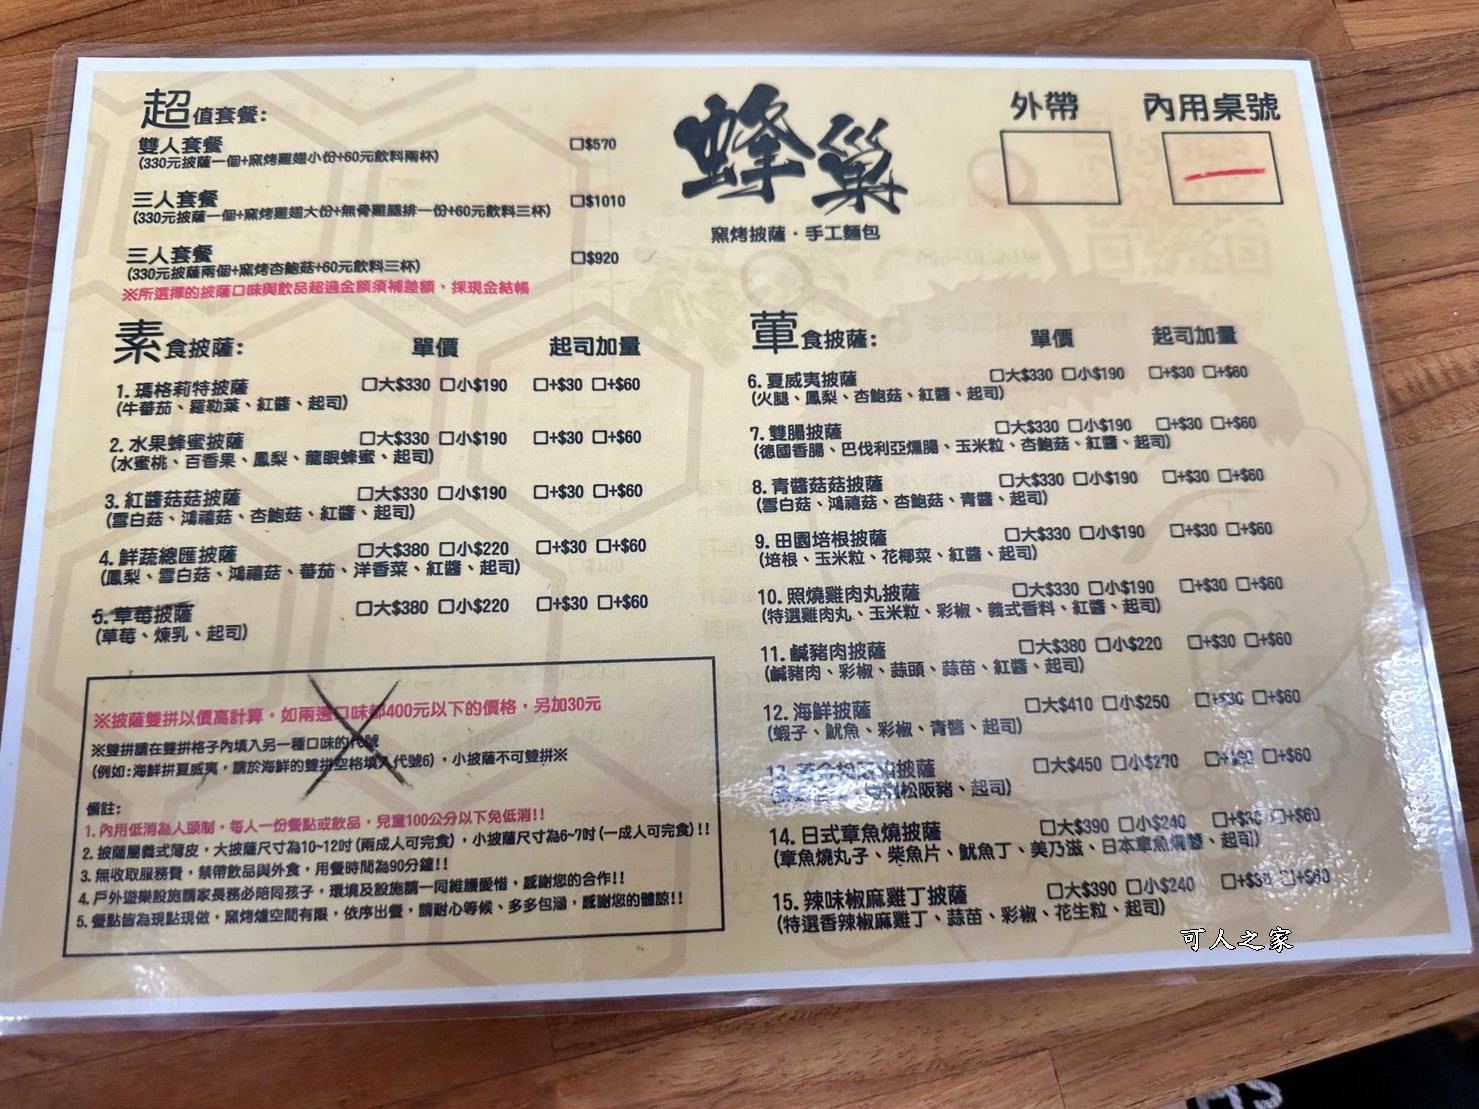 超值套餐:
雙人套餐 □$570
(330元披薩一個+窯烤雞翅小份+60元飲料兩杯)
三人套餐 □$1010
(330元披薩一個+窯烤雞翅大份+無骨雞腿排一份+60元飲料三杯)
三人套餐 □$920
(330元披薩兩個+窯烤杏鮑菇+60元飲料三杯)
※所選擇的披薩口味與飲品超過金額須補差額，採現金結帳
蜂巢
窯烤披薩・手工麵包
外帶 內用桌號
素食披薩: 單價 起司加量
1. 瑪格莉特披薩 □大$330 □小$190 □+$30 □+$60
(牛蕃茄、羅勒葉、紅醬、起司)
2. 水果蜂蜜披薩 □大$330 □小$190 □+$30 □+$60
(水蜜桃、百香果、鳳梨、龍眼蜂蜜、起司)
3. 紅醬菇菇披薩 □大$330 □小$190 □+$30 □+$60
(雪白菇、鴻禧菇、杏鮑菇、紅醬、起司)
4. 鮮蔬總匯披薩 □大$380 □小$220 □+$30 □+$60
(鳳梨、雪白菇、鴻禧菇、蕃茄、洋香菜、紅醬、起司)
5. 草莓披薩 □大$380 □小$220 □+$30 □+$60
(草莓、煉乳、起司)
※披薩雙拼以價高計算，如兩邊口味都400元以下的價格，另加30元
※雙拼請在雙拼格子內填入另一種口味的代號
(例如:海鮮拼夏威夷，請於海鮮的雙拼空格填入代號6)，小披薩不可雙拼※
備註:
1. 內用低消為人頭制，每人一份餐點或飲品，兒童100公分以下免低消!!
2. 披薩屬義式薄皮，大披薩尺寸為10~12吋(兩成人可完食)，小披薩尺寸為6~7吋(一成人可完食)!!
3. 無收取服務費，禁帶飲品與外食，用餐時間為90分鐘!!
4. 戶外遊樂設施請家長務必陪同孩子，環境及設施請一同維護愛惜，感謝您的合作!!
5. 餐點皆為現點現做，窯烤爐空間有限，依序出餐，請耐心等候、多多包涵，感謝您的體諒!!
葷食披薩: 單價 起司加量
6. 夏威夷披薩 □大$330 □小$190 □+$30 □+$60
(火腿、鳳梨、杏鮑菇、紅醬、起司)
7. 雙腸披薩 □大$330 □小$190 □+$30 □+$60
(德國香腸、巴伐利亞燻腸、玉米粒、杏鮑菇、紅醬、起司)
8. 青醬菇菇披薩 □大$330 □小$190 □+$30 □+$60
(雪白菇、鴻禧菇、杏鮑菇、青醬、起司)
9. 田園培根披薩 □大$330 □小$190 □+$30 □+$60
(培根、玉米粒、花椰菜、紅醬、起司)
10. 照燒雞肉丸披薩 □大$330 □小$190 □+$30 □+$60
(特選雞肉丸、玉米粒、彩椒、義式香料、紅醬、起司)
11. 鹹豬肉披薩 □大$380 □小$220 □+$30 □+$60
(鹹豬肉、彩椒、蒜頭、蒜苗、紅醬、起司)
12. 海鮮披薩 □大$410 □小$250 □+$30 □+$60
(蝦子、魷魚、彩椒、青醬、起司)
13. 披薩 □大$450 □小$270 □+$30 □+$60
松阪豬、起司)
14. 日式章魚燒披薩 □大$390 □小$240 □+$30 □+$60
(章魚燒丸子、柴魚片、魷魚丁、美乃滋、日本章魚燒醬、起司)
15. 辣味椒麻雞丁披薩 □大$390 □小$240 □+$30 □+$60
(特選香辣椒麻雞丁、蒜苗、彩椒、花生粒、起司)
可人之家